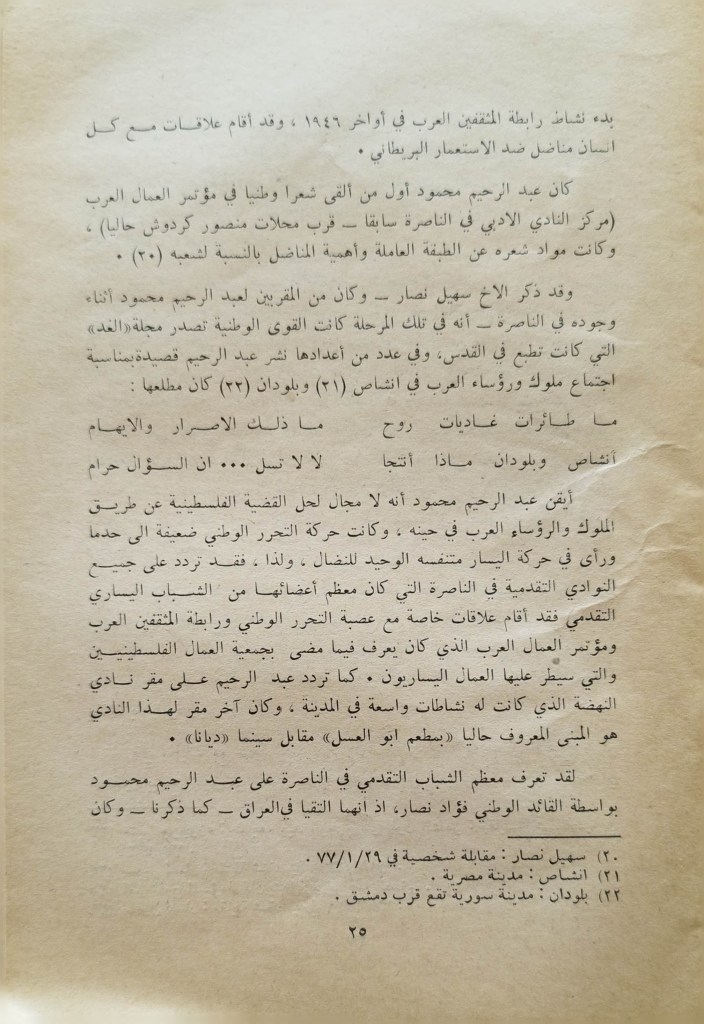 بدء نشاط رابطة المثقفين العرب في أواخر ١٩٤٦ ، وقد أقام علاقات مع كل
انسان مناضل ضد الاستعمار البريطاني .
كان عبد الرحيم محمود أول من ألقى شعرا وطنيا في مؤتمر العمال العرب
(مركز النادي الادبي في الناصرة سابقا ــ قرب محلات منصور كردوش حاليا) ،
وكانت مواد شعره عن الطبقة العاملة وأهمية المناضل بالنسبة لشعبه (٢٠) .
وقد ذكر الاخ سهيل نصار ــ وكان من المقربين لعبد الرحيم محمود أثناء
وجوده في الناصرة ــ أنه في تلك المرحلة كانت القوى الوطنية تصدر مجلة«الغد»
التي كانت تطبع في القدس، وفي عدد من أعدادها نشر عبد الرحيم قصيدة بمناسبة
اجتماع ملوك ورؤساء العرب في انشاص (٢١) وبلودان (٢٢) كان مطلعها :
ما طائرات غاديات روح ما ذلك الاصرار والايهام
أنشاص وبلودان ماذا أنتجا لا لا تسل ... ان السؤال حرام
أيقن عبد الرحيم محمود أنه لا مجال لحل القضية الفلسطينية عن طريق
الملوك والرؤساء العرب في حينه ، وكانت حركة التحرر الوطني ضعيفة الى حدما
ورأى في حركة اليسار متنفسه الوحيد للنضال ، ولذا ، فقد تردد على جميع
النوادي التقدمية في الناصرة التي كان معظم أعضائها من الشباب اليساري
التقدمي فقد أقام علاقات خاصة مع عصبة التحرر الوطني ورابطة المثقفين العرب
ومؤتمر العمال العرب الذي كان يعرف فيما مضى بجمعية العمال الفلسطينيين
والتي سيطر عليها العمال اليساريون . كما تردد عبد الرحيم على مقر نادي
النهضة الذي كانت له نشاطات واسعة في المدينة ، وكان آخر مقر لهذا النادي
هو المبنى المعروف حاليا «بمطعم ابو العسل» مقابل سينما «ديانا» .
لقد تعرف معظم الشباب التقدمي في الناصرة على عبد الرحيم محمود
بواسطة القائد الوطني فؤاد نصار، اذ انهما التقيا في العراق ــ كما ذكرنا ــ وكان
٢٠) سهيل نصار : مقابلة شخصية في ٧٧/١/٢٩ .
٢١) انشاص : مدينة مصرية .
٢٢) بلودان : مدينة سورية تقع قرب دمشق .
٢٥